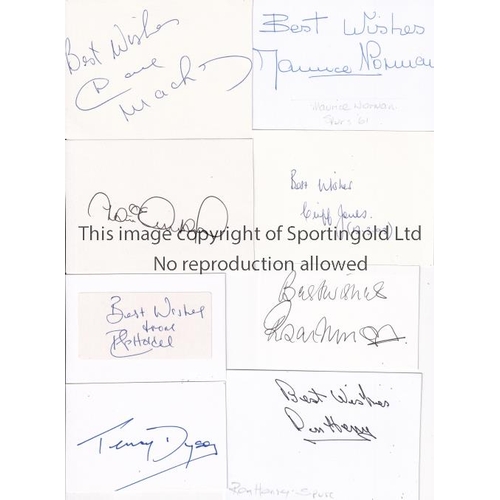 Best Wishes
Dave
Mackay
Best Wishes
Maurice Norman
Maurice Norman
Spurs '61
Best Wishes
Cliff Jones
This image copyright of Sportingold Ltd
No reproduction allowed
Best Wishes
from
Best wishes
Terry Dyson
Best Wishes
Ron Henry
Ron Henry - Spurs